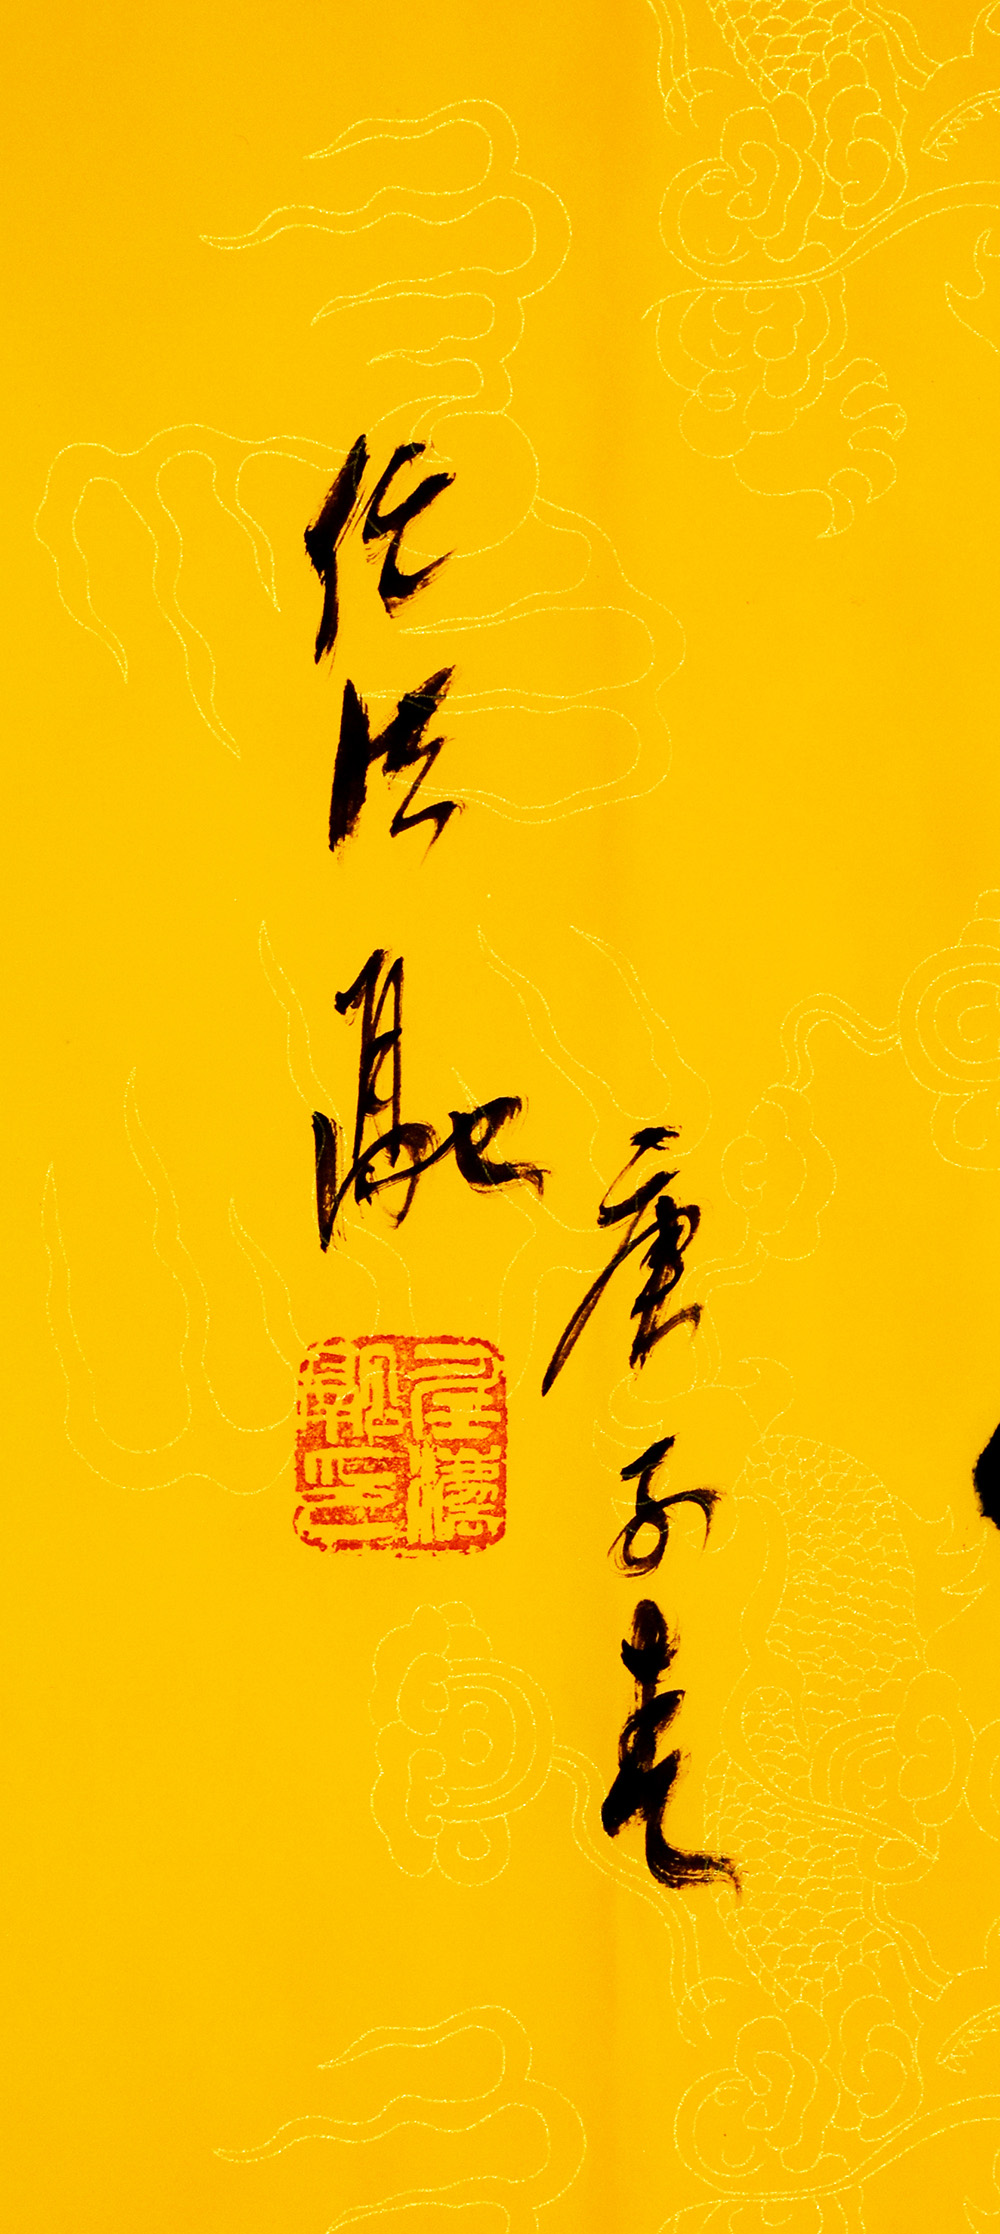 庚子春
任法融
任法融印